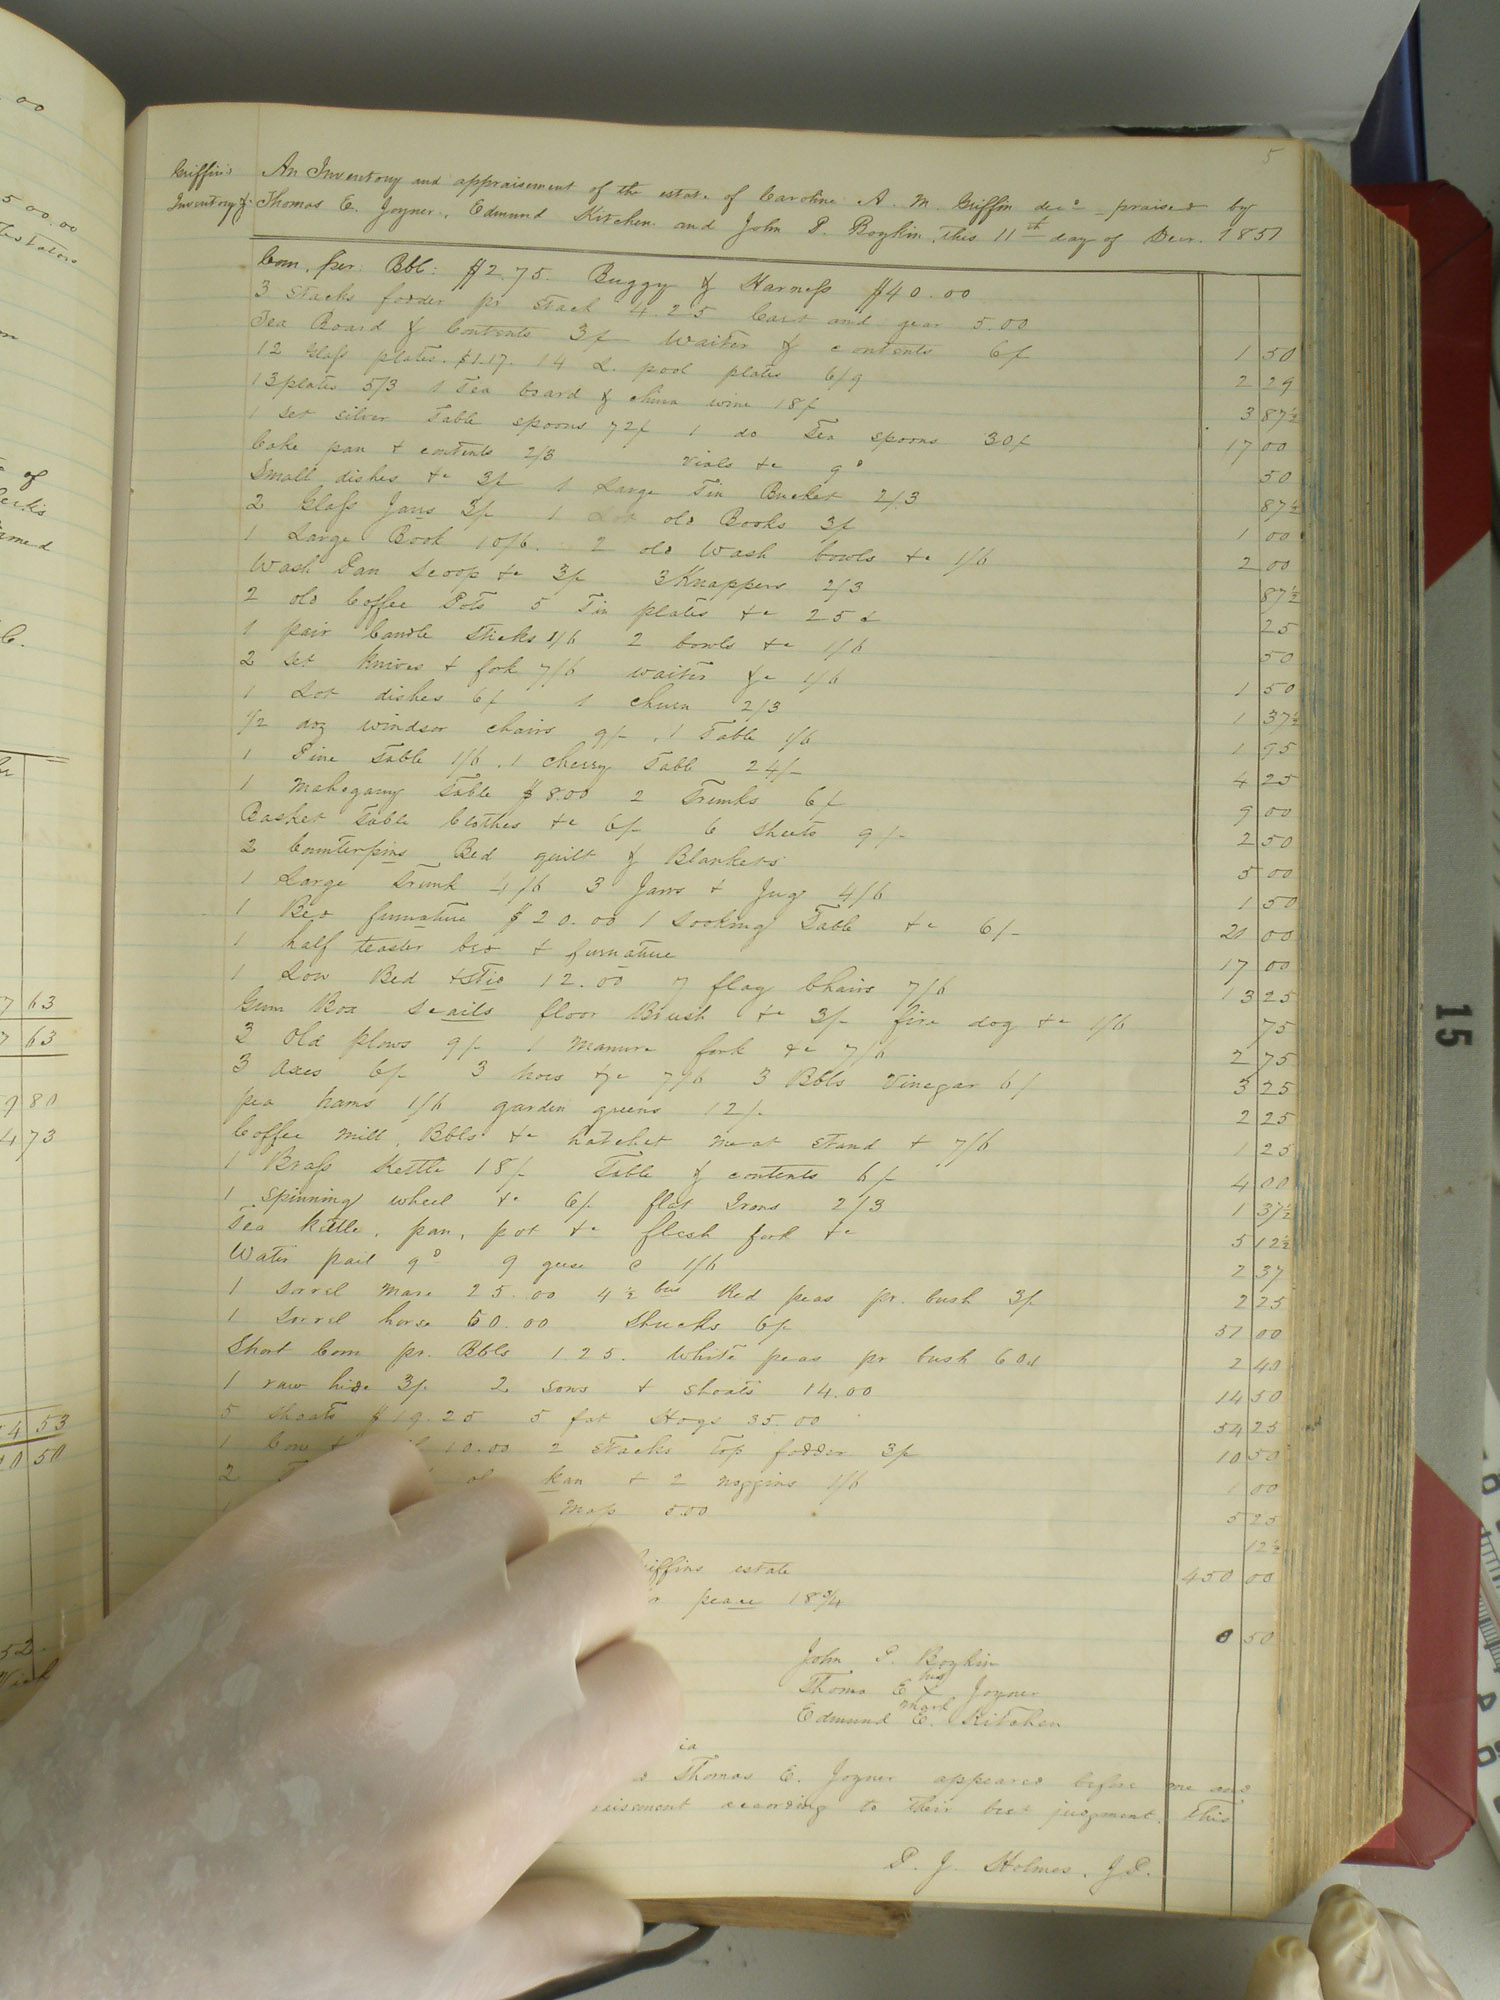 5
Griffin's
Inventory &c
An Inventory and appraisement of the estate of Caroline A. M. Griffin decd praised by
Thomas E. Joyner, Edmund Kitchen and John P. Boykin, this 11th day of Decr. 1851
Corn per Bbl: $2.75 Buggy & Harness $40.00
3 Stacks fodder pr stack 4.25 Cart and gear 5.00
Tea Board & Contents 3/ Waiter & contents 6/ 1 50
12 Glass plates $1.17. 14 L. pool plates 6/9 2 29
13 plates 5/3 1 Tea board & china wine 18/ 3 87½
1 set silver Table spoons 72/ 1 do Tea spoons 30/ 17 00
Cake pan & contents 2/3 vials &c 9d 50
Small dishes &c 3/ 1 Large Tin Bucket 2/3 87½
2 Glass Jars 3/ 1 Lot old Books 3/ 1 00
1 Large Book 10/6. 2 old Wash bowls &c 1/6 2 00
Wash Pan Scoop &c 3/ 3 Knappers 2/3 87½
2 old Coffee Pots 5 Tin plates &c 25 25
1 pair Candle Sticks 1/6 2 bowls &c 1/6 50
2 set knives & fork 7/6 waiter &c 1/6 1 50
1 Lot dishes 6/ 1 churn 2/3 1 37½
1/2 doz windsor chairs 9/- . 1 Table 1/6 1 75
1 Pine Table 1/6 . 1 Cherry Table 24/- 4 25
1 Mahogany Table $8.00 2 Trunks 6/ 9 00
Basket Table Clothes &c 6/- 6 Sheets 9/- 2 50
2 Counterpins Bed quilt & Blankets 5 00
1 Large Trunk 4/6 3 Jarrs & Jug 4/6 1 50
1 Bed furnature $20.00 1 Looking Table &c 6/- 21 00
1 half teaster bed & furnature 17 00
1 Low Bed &Stid 12.00 7 flag Chairs 7/6 13 25
Gum Box floor Brush &c 3/- fire dog &c 1/6 75
3 Old plows 9/- 1 manure fork &c 7/6 2 75
3 Axes 6/ 3 hoes &c 7/6 3 Bbls Vinegar 6/ 3 25
pea hams 1/6 garden greens 12/. 2 25
Coffee mill, Bbls &c hatchet meat stand & 7/6 1 25
1 Brass Kettle 18/ Table & contents 6/ 4 00
1 Spinning wheel &c 6/ flat Irons 2/3 1 37½
Tea kittle, pan, pot &c flesh fork &c 5 12½
Water pail 9d 9 geese @ 1/6 2 37
1 Sorrel mare 25.00 4½ bus Red peas pr. bush 3/ 2 25
1 Sorrel horse 50.00 Shucks 6/ 51 00
Short Corn pr. Bbls 1.25. White peas pr bush 60d 2 40
1 raw hide 3/. 2 sows & shoats 14.00 14 50
5 shoats $19.25 5 fat Hogs 35.00 54 25
1 Cow 10.00 2 Stacks top fodder 3/ 10 50
2 kan & 2 noggins 1/6 1 00
1 5.00 5 25
12½
riffins estate 450 00
peace 18¾
0 50
John P. Boykin
his
Thomas E X Joyner
mark
Edmund E. Kitchen
ia
Thomas E. Joyner appeared before me and
raisement according to their best judgment. This
P. J. Holmes, J.P.
00
500.00
Testators
of
6.
7 63
7 63
9 80
4 73
4 53
0 50
52.
15